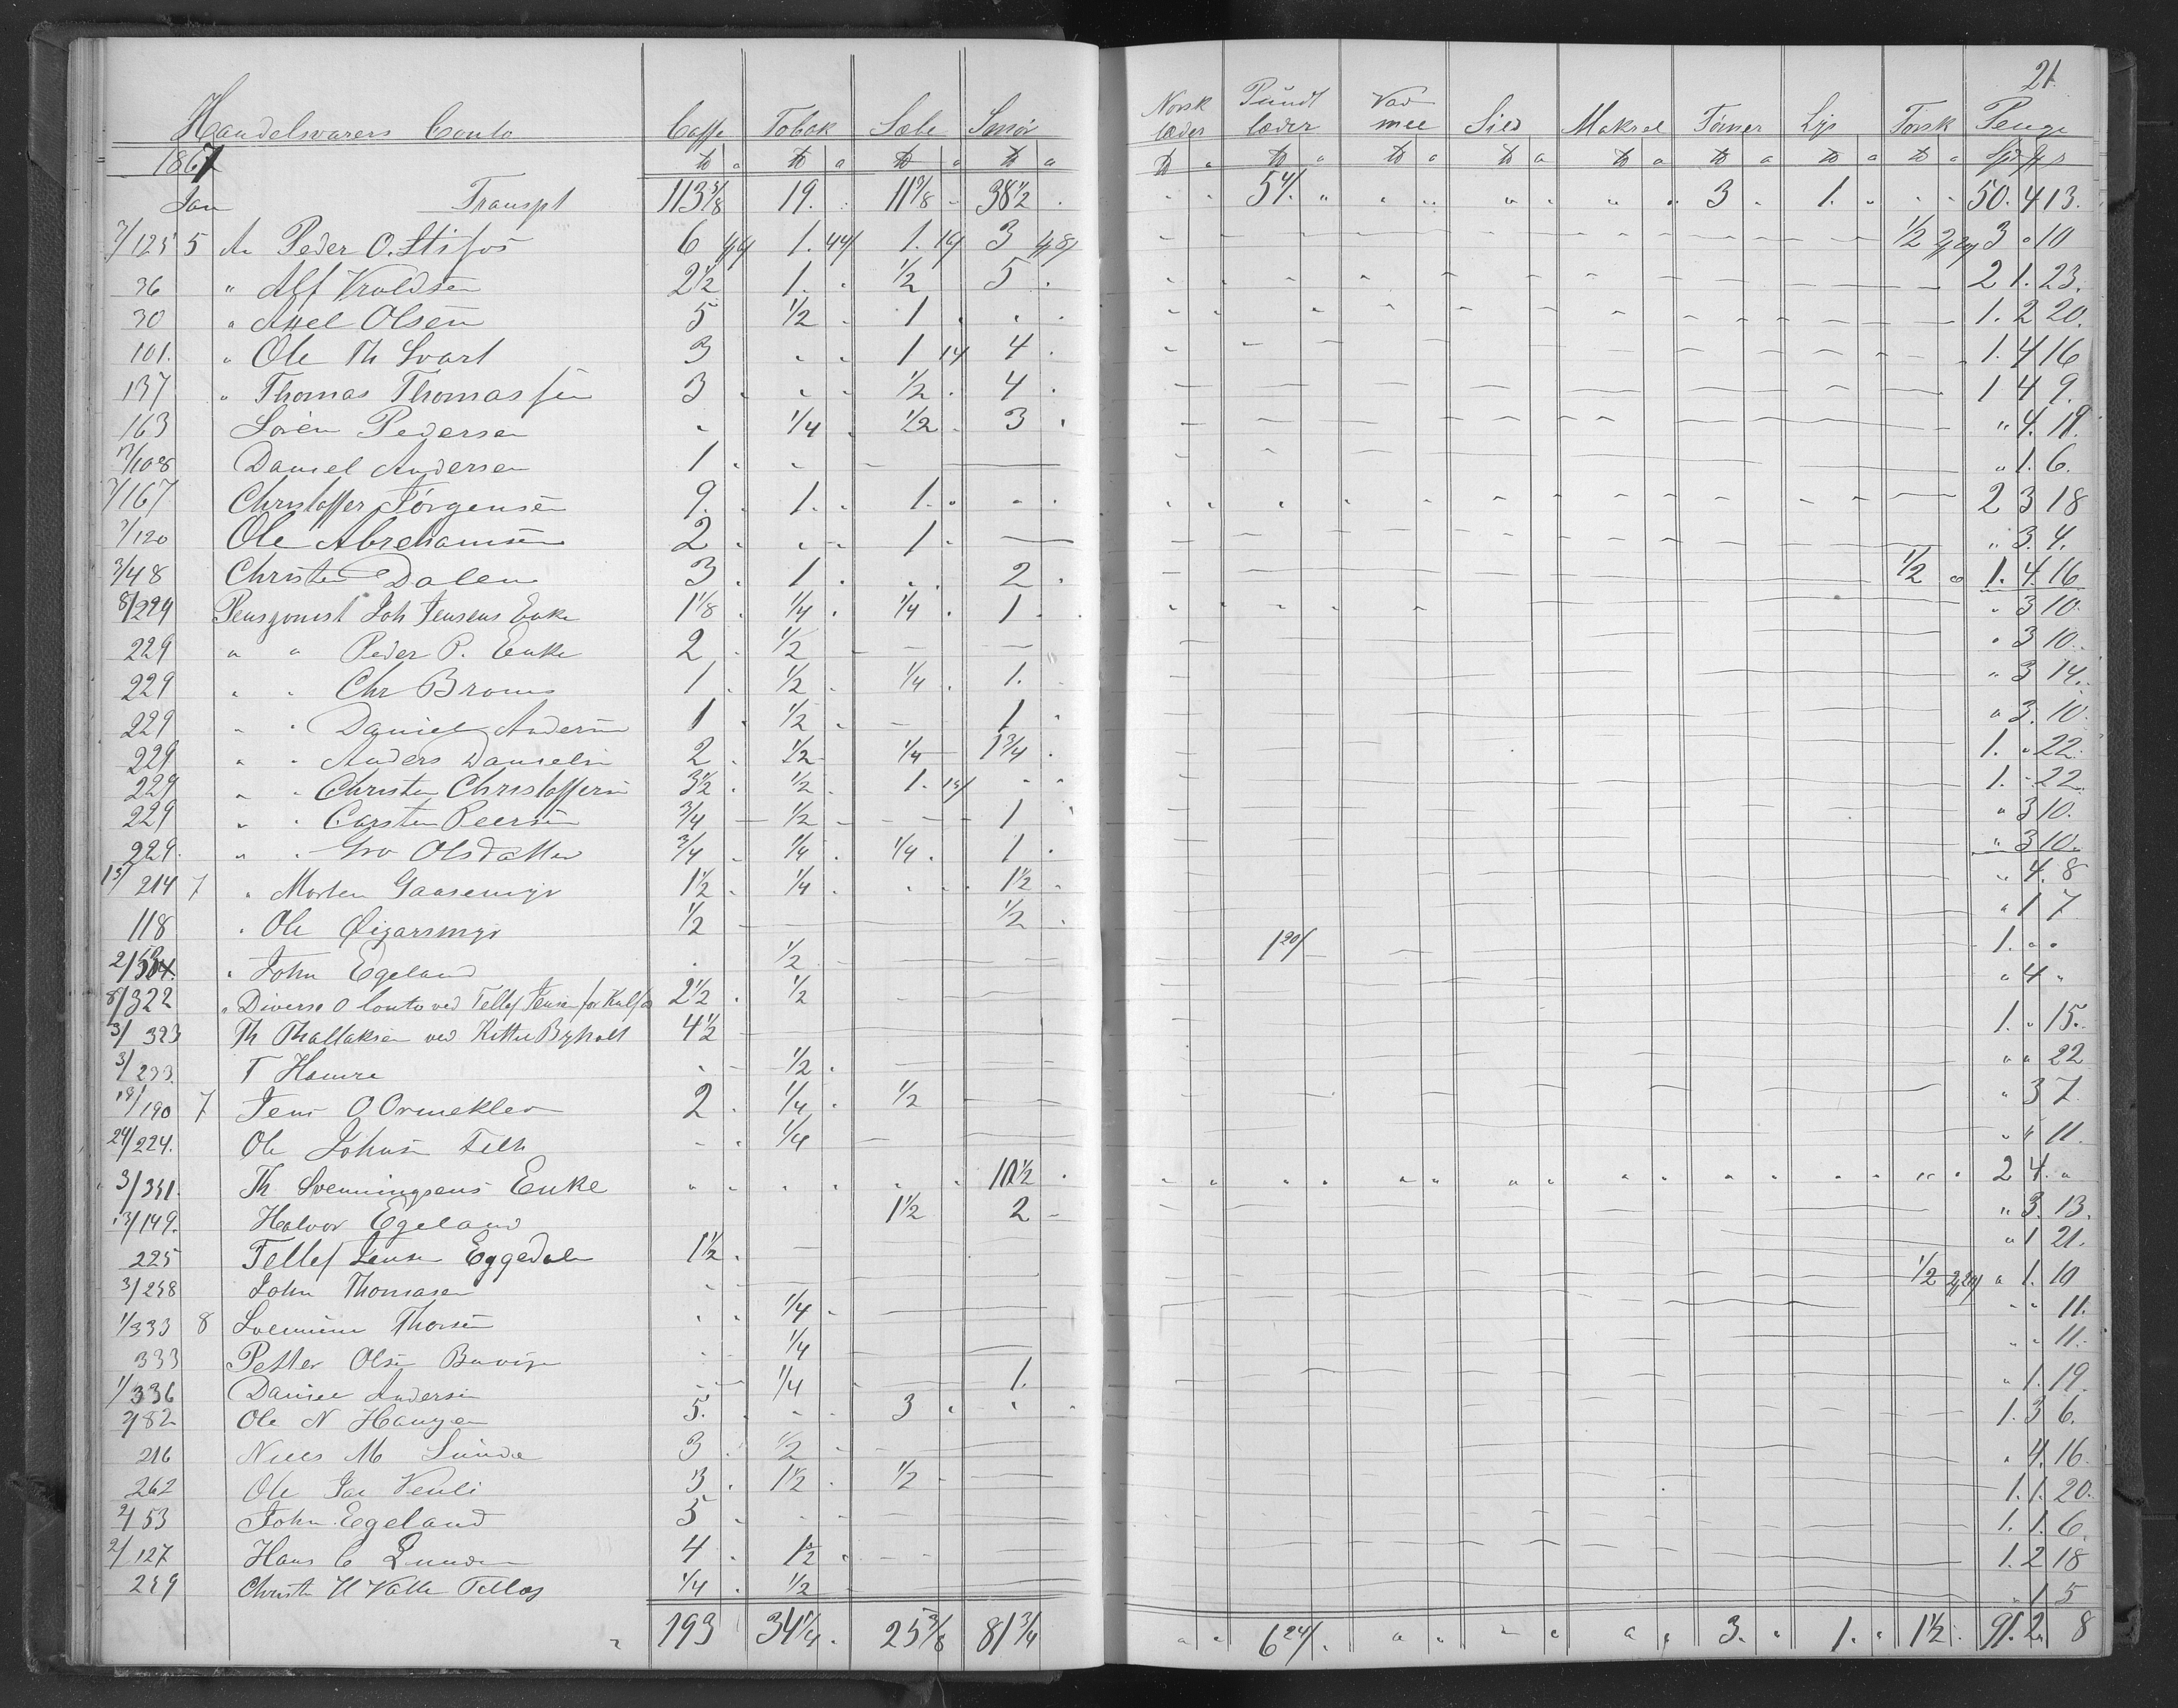 21.
Handelsvarers Conto | Caffe | Tobak | Sæbe | Smør | Norsk læder | Pundt læder | Vad mel | Sild | Makrel | Tørner | Lys | Torsk | Penge
1867 | ℔ | ℔ | ℔ | ℔ | ℔ | ℔ | ℔ | ℔ | ℔ | ℔ | ℔ | ℔ | Spd ß s
Jan Transpt 113 3/8 19. 11 7/8 38 1/2 3 1. 50. 4 13.
7/125 5 An Peder O. Stifos 6 1. 1. 3 1/2 3 " 10
36 " Alf Kroldsen 2 1/2 1. 1/2 5 2 1. 23.
30 " Axel Olsen 5 1/2 1 1. 2 20.
101. " Ole Th Svart 3 1 14 4 1. 4 16
137 " Thomas Thomassen 3 1/2 4 1 4 9.
163 Søren Pedersen 1/4 1/2 3 " 4. 19.
17/108 Daniel Andersen 1 " 1. 6.
7/167 Christoffer Jørgensen 9. 1. 1. 2 3 18
7/120 Ole Abrehamsen 2 1 " 3. 4.
3/48 Christen Dalen 3. 1 2 1/2 1. 4. 16
8/224 Pensjonist Joh Jensens Enke 1 1/8 1/4 1/4 1 " 3 10.
229 " " Peder P. Enke 2 1/2 " 3 10.
229 " " Chr Broms 1 1/2 1/4 1. " 3 14.
229 " " Daniel Andersen 1 1/2 1 " 3. 10.
229 " " Anders Danielsen 2 1/2 1/4 1 3/4 1. " 22.
229 " " Christen Christoffersen 3 1/2 1/2 1. 1. " 22.
229 " " Carsten Peersen 3/4 1/2 1 " 3 10.
229. " " Gro Olsdatter 3/4 1/4 1/4 1 " 3 10.
13/214 7 " Morten Gaasemyr 1 1/2 1/4 1 1/2 " 4. 8
118 " Ole Øigarsmyr 1/2 1/2 " 1 7
" John Egeland 1/2 1. " "
8/322 " Diverse O Conto ved Tellef Jensen for Kalfos 2 1/2 1/2 " 4 "
3/323 Th Thallaksen ved Kittel Byholt 4 1/2 1. " 15.
3/233. T Hamre 1/2 " " 22
18/190 7 Jens O Ormeklev 2 1/4 1/2 " 3 7.
24/224. Ole Johnsen 1/4 " " 11.
3/351. Th Svenningsens Enke 10 1/2 2 4. "
13/149. Halvor Egeland 1 1/2 2 " 3. 13.
225 Tellef Jensen Eggedalen 1 1/2 " 1 21.
3/258 John Thomasen 1/2 " 1. 10
1/333 8 Svennum Thorsen 1/4 " " 11.
333 Petter Olsen 1/4 " " 11.
1/336 Daniel Andersen 1/4 1. " 1. 19.
2/82 Ole N Haugen 5. 3 1. 3 6.
216 Niels M Lunde 3 1/2 " 4. 16.
262 Ole Jac Venli 3 1 1/2 1/2 1. 1. 20.
2/53 John Egeland 5 1. 1. 6.
2/127 Hans C Lunden 4 1 1/2 1. 2 18
259 Christen H Valle 1/4 1/2 " 1 5
193 34 1/4 25 3/8 81 3/4 3. 1. 1 1/2 91. 2. 8